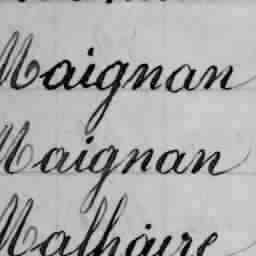 Maignan
Maignan
Malhaire